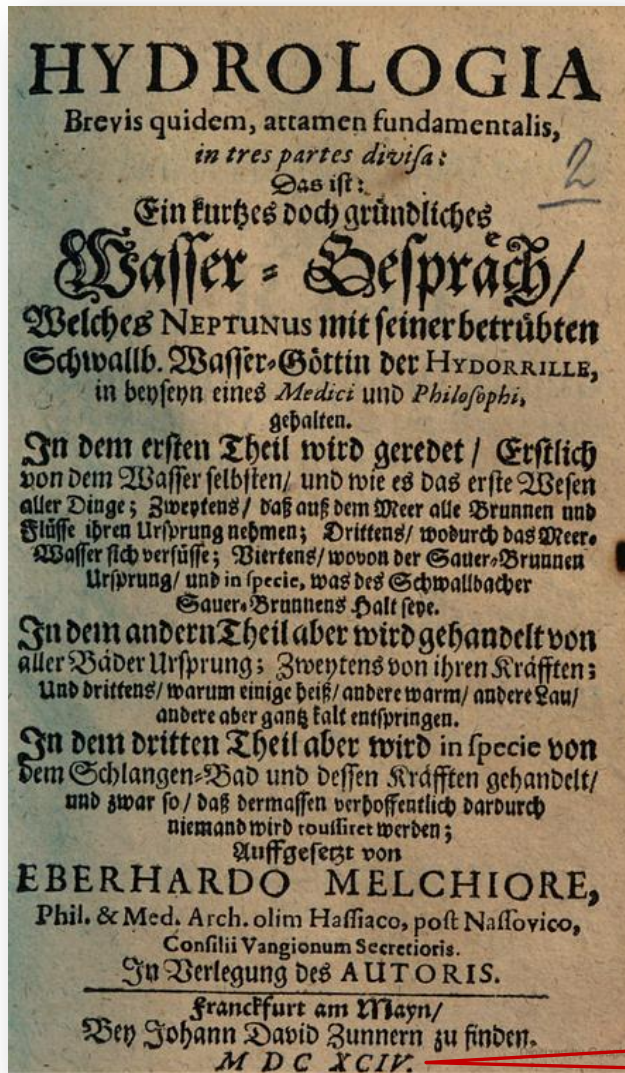 HYDROLOGIA
Brevis quidem, attamen fundamentalis,
in tres partes divisa:
2
Das ist:
Ein kurtzes doch gründliches
Wasser-Gespräch/
Welches NEPTUNUS mit seiner betrübten
Schwallb. Wasser-Göttin der HYDORRILLE,
in beyseyn eines Medici und Philosophi,
gehalten.
In dem ersten Theil wird geredet / Erstlich
von dem Wasser selbsten/ und wie es das erste Wesen
aller Dinge; Zweytens/ daß auß dem Meer alle Brunnen und
Flüsse ihren Ursprung nehmen; Drittens/ wodurch das Meer-
Wasser sich versüsse; Viertens/ wovon der Sauer-Brunnen
Ursprung/ und in specie, was des Schwallbacher
Sauer-Brunnens Halt seye.
In dem andern Theil aber wird gehandelt von
aller Bäder Ursprung; Zweytens von ihren Kräfften;
Und drittens/ warum einige heiß/ andere warm/ andere Lau/
andere aber gantz kalt entspringen.
In dem dritten Theil aber wird in specie von
dem Schlangen-Bad und dessen Kräfften gehandelt/
und zwar so/ daß dermassen verhoffentlich dardurch
niemand wird toussiret werden;
Auffgesetzt von
EBERHARDO MELCHIORE,
Phil. & Med. Arch. olim Hassiaco, post Nassovico,
Consilii Vangionum Secretioris.
In Verlegung des AUTORIS.
Franckfurt am Mayn/
Bey Johann David Zunnern zu finden.
M D C XCIV.